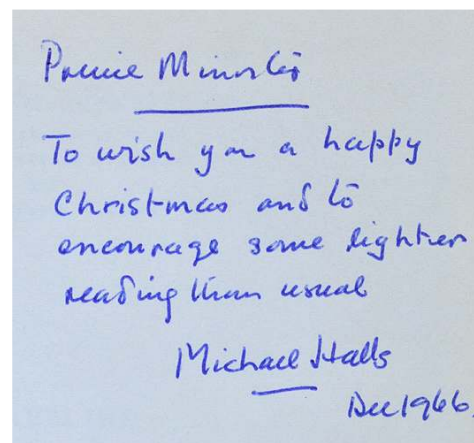 Prime Minister
To wish you a happy
Christmas and to
encourage some lighter
reading than usual
Michael Halls
Dec 1966.